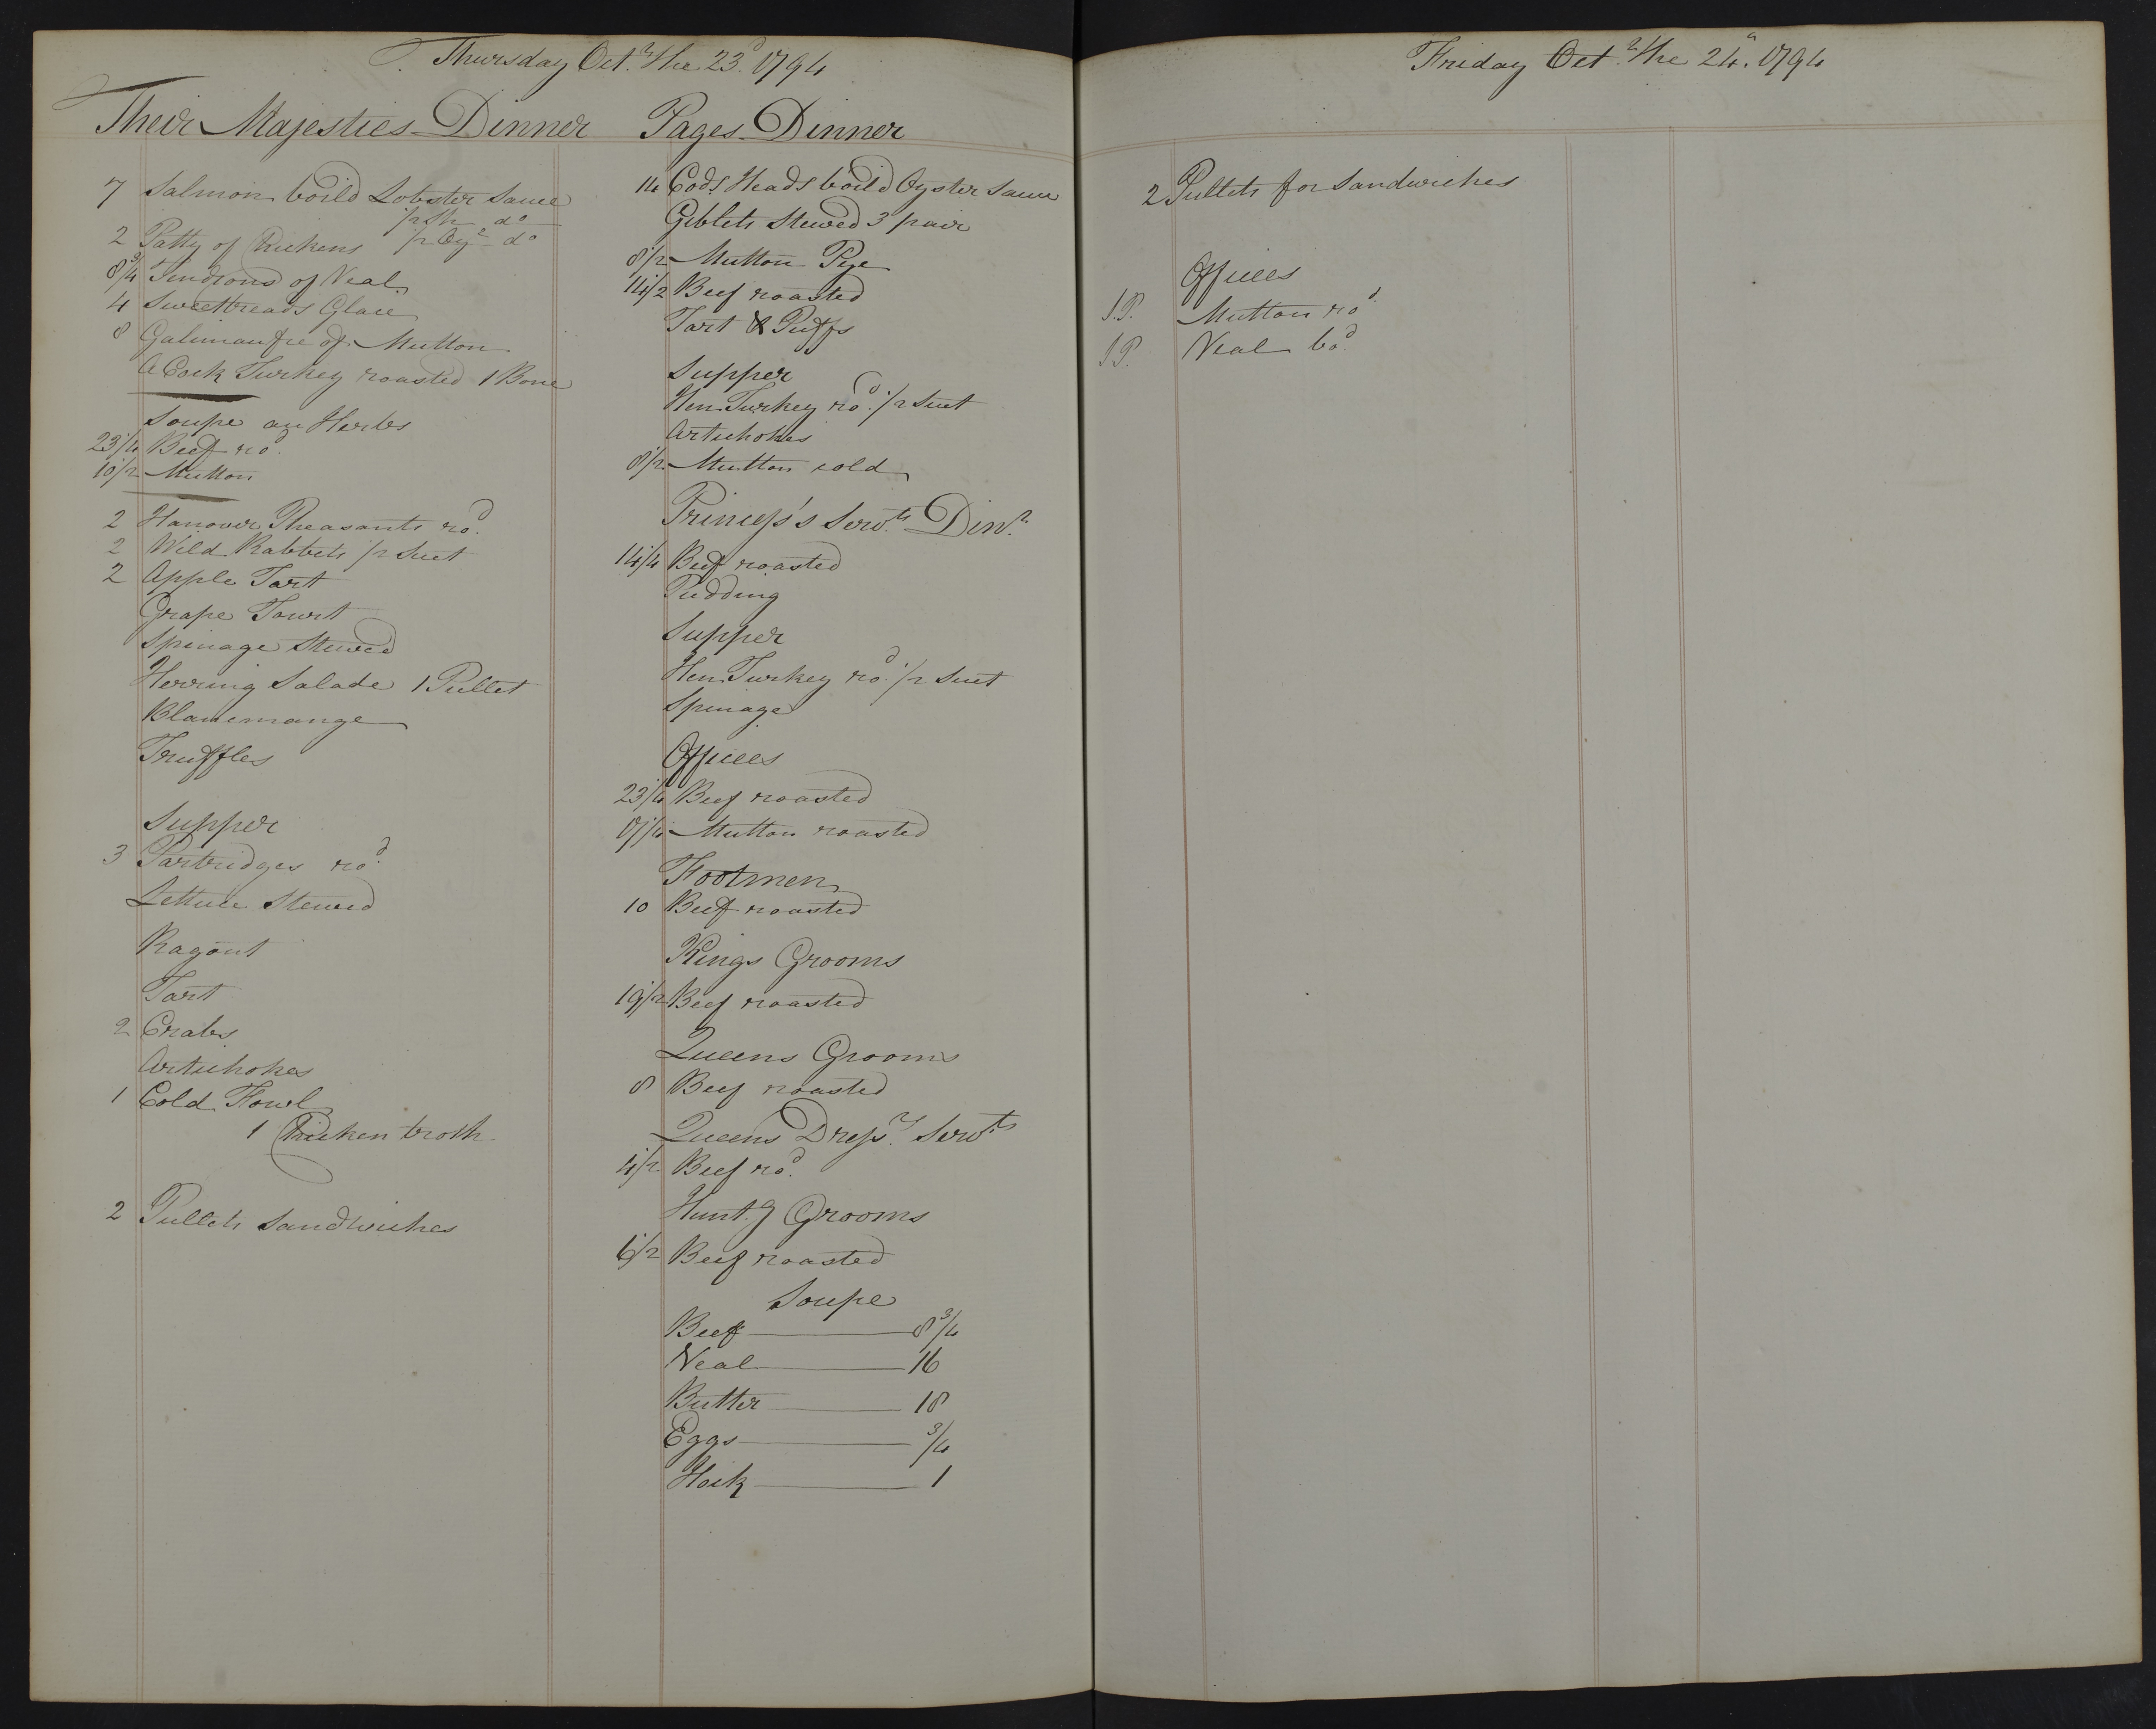 Thursday Oct.r the 23.d 1794
Their Majesties Dinner
7 Salmon boild Lobster Sauce
1/2 Sh do
2 Patty of Chickens 1/2 Oyr do
8 3/4 Tendrons of Veal
4 Sweetbreads Glace
8 Galimaufre of Mutton
A Cock Turkey roasted 1 Bone
Soupe au Herbs
23 1/4 Beef ro.d
10 1/2 Mutton
2 Hanover Pheasants ro.d
2 Wild Rabbits 1/2 Suet
2 Apple Tart
Grape Tourt
Spinage Stewed
Herring Salade 1 Pullet
Blancmange
Truffles
Supper
3 Partridges ro.d
Lettuce Stewed
Ragout
Tart
2 Crabs
Artichokes
1 Cold Fowl
1 Chicken broth
2 Pullets Sandwiches
Pages Dinner
14 Cods Heads boild Oyster Sauce
Giblets Stewed 3 pair
8 1/2 Mutton Pye
14 1/2 Beef roasted
Tart & Puffs
Supper
Hen Turkey ro.d 1/2 Suet
Artichokes
8 1/2 Mutton cold
Princess's Serv.ts Din.r
14 1/4 Beef roasted
Pudding
Supper
Hen Turkey ro.d 1/2 Suet
Spinage
Offices
23 1/4 Beef roasted
17 1/4 Mutton roasted
Footmen
10 Beef roasted
Kings Grooms
19 1/2 Beef roasted
Queens Grooms
8 Beef roasted
Queens Dress.rs Serv.ts
4 1/2 Beef ro.d
Hunt.g Grooms
6 1/2 Beef roasted
Soupe
Beef 8 3/4
Veal 16
Butter 18
Eggs 3/4
Hock 1
Friday Oct.r the 24.th 1794
2 Pullets for Sandwiches
Offices
1.P. Mutton ro.d
1 P. Veal bo.d